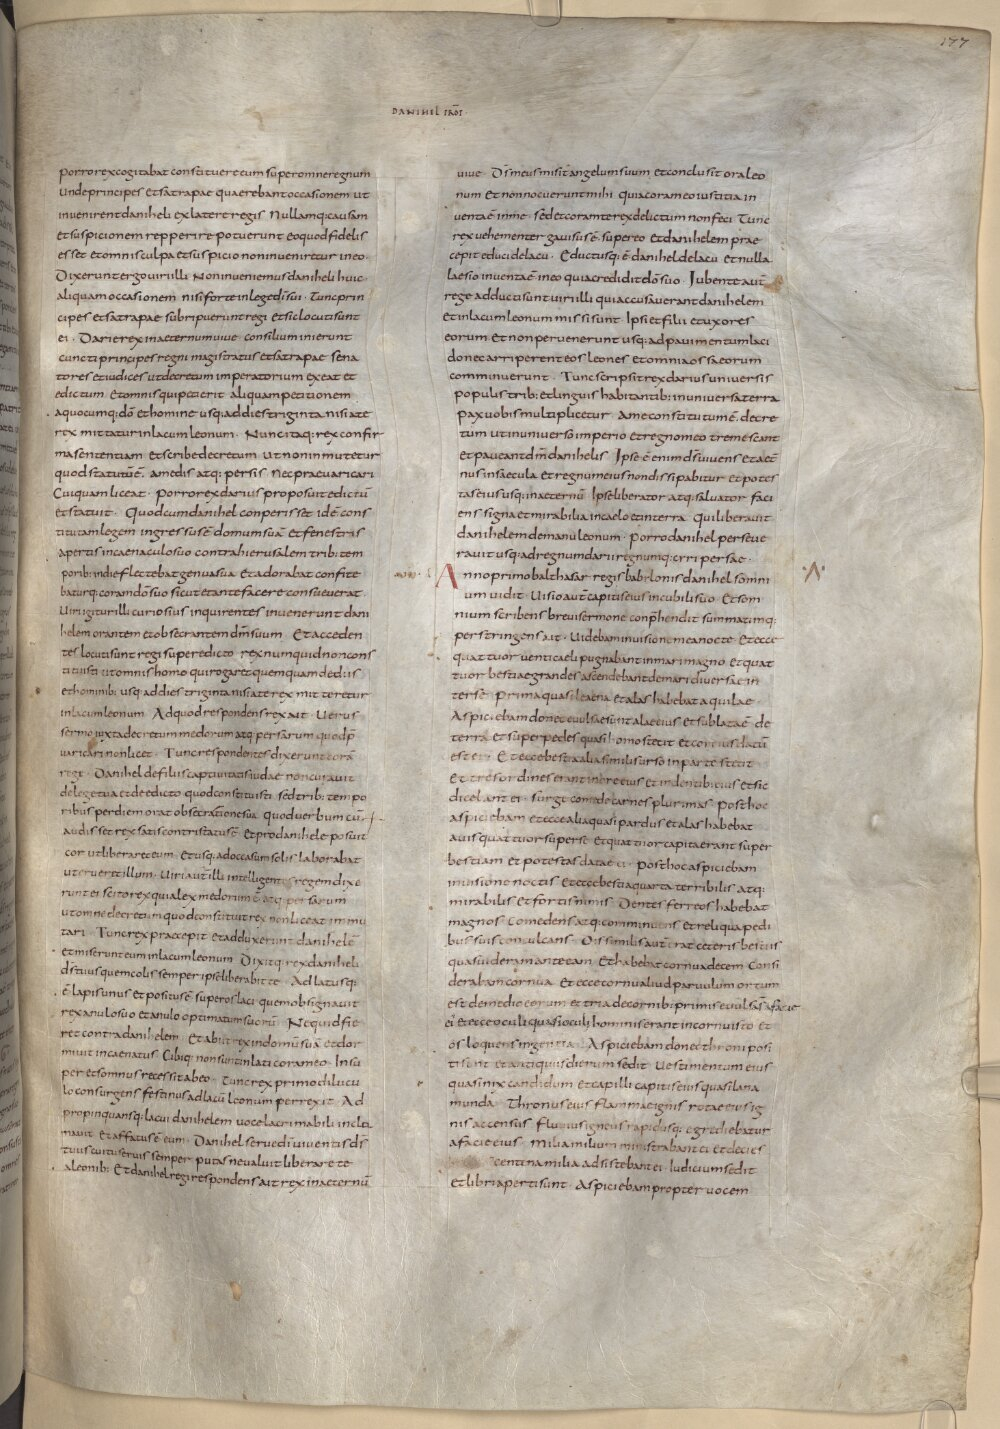 177
DANIHEL
porro rex cogitabat constituere eum super omne regnum
unde principes et satrapae quaerebant occasionem ut
invenirent daniheli ex latere regis Nullamq; causam
et suspicionem repperire potuerunt eo quod fidelis
esset et omnis culpa et suspicio non inveniretur in eo
Dixerunt ergo viri illi Non inveniemus daniheli huic
aliquam occasionem nisi forte in lege di sui Tunc prin
cipes et satrapae subripuerunt regi et sic locuti sunt
ei Darie rex in aeternum vive consilium inierunt
cuncti principes regni magistratus et satrapae sena
tores et iudices ut decretum imperatorium exeat et
edictum Et omnis qui petierit aliquam petitionem
a quocumq; do et homine usq; ad dies triginta nisi a te
rex mittatur in lacum leonum Nunc itaq; rex confir
ma sententiam et scribe decretum Ut non inmutetur
quod statutum e a medis atq; persis Nec praevaricari
Cuiquam liceat Porro rex darius proposuit edictū
et statuit Quod cum danihel comperisset idē cons
titutam legem ingressus ē domum suā Et fenestris
apertis in caenaculo suo contra hierusalem trib; tem
porib; in die flectebat genua sua Et adorabat confite
baturq; coram do suo sicut et ante facere consueverat
Viri igitur illi curiosius inquirentes invenerunt dani
helem orantem et obsecrantem dm suum Et acceden
tes locuti sunt regi super edicto rex numquid non cons
tituisti ut omnis homo qui rogaret quemquam de diis
et hominib; usq; ad dies triginta nisi a te rex mitteretur
in lacum leonum Ad quod respondens rex ait Verus
sermo iuxta decretum medorum atq; persarum quod p̄
varicari non licet Tunc respondentes dixerunt corā
rege Danihel de filiis captivitatis iudae non curavit
de lege tua et de edicto quod constituisti sed trib; tempo
ribus per diem orat obsecratione sua Quod verbum cū
audisset rex satis contristatus ē Et pro danihele posuit
cor ut liberaret eum Et usq; ad occasum solis laborabat
ut erueret illum Viri aut illi intelligentes regem dixe
runt ei scito rex quia lex medorum ē atq; persarum
ut omne decretum quod constituit rex non liceat inmu
tari Tunc rex praecepit et adduxerunt danihelē
et miserunt eum in lacum leonum Dixitq; rex daniheli
ds tuus quem colis semper ipse liberabit te Adlatusq;
ē lapis unus et positus ē super os laci quem obsignavit
rex anulo suo et anulo optimatum suorū Ne quid fie
ret contra danihelem Et abiit rex in domū suā et dor
mivit incaenatus Cibiq; non sunt inlati coram eo Insu
per et somnus recessit ab eo Tunc rex primo dilucu
lo consurgens festinus ad lacū leonum perrexit Ad
propinquansq; lacui danihelem voce lacrimabili incla
mavit Et affatus ē eum Danihel serve di viventis ds
tuus cui tu servis semper putas ne valuit liberare te
a leonib; Et danihel regi respondens ait rex in aeternū
vive Ds meus misit angelum suum et conclusit ora leo
num Et non nocuerunt mihi Quia coram eo iustitia in
venta ē in me sed et coram te rex delictum non feci Tunc
rex vehementer gavisus ē super eo Et danihelem prae
cepit educi de lacu Eductusq; ē danihel de lacu et nulla
laesio inventa ē in eo quia credidit do suo Iubente aut
rege adducti sunt viri illi qui accusaverant danihelem
Et in lacum leonum missi sunt Ipsi et filii et uxores
eorum Et non pervenerunt usq; ad pavimentum laci
donec arriperent eos leones Et omnia ossa eorum
comminuerunt Tunc scripsit rex darius universis
populis trib; et linguis habitantib; in universa terra
pax vobis multiplicetur A me constitutum ē decre
tum ut in universo imperio et regno meo tremescant
et paveant dm danihelis Ipse ē enim ds vivens et aeter
nus in saecula Et regnum eius non dissipabitur et potes
tas eius usq; in aeternū Ipse liberator atq; salvator faci
ens signa et mirabilia in caelo et in terra Qui liberavit
danihelem de manu leonum Porro danihel perseve
ravit usq; ad regnum darii regnumq; cyri persae
Anno primo balthasar regis babylonis danihel somni
um vidit Visio aut capitis eius in cubili suo Et som
nium scribens brevi sermone conprehendit summatimq;
perstringens ait Videbam in visione mea nocte Et ecce
quattuor venti caeli pugnabant in mari magno Et quat
tuor bestiae grandes ascendebant de mari diversae in
ter se Prima quasi leaena et alas habebat aquilae
Aspiciebam donec evulsae sunt alae eius Et sublata ē de
terra et super pedes quasi homo stetit Et cor eius datū
est ei Et ecce bestia alia similis urso in parte stetit
Et tres ordines erant in ore eius et in dentib; eius Et sic
dicebant ei surge comede carnes plurimas Post hoc
aspiciebam et ecce alia quasi pardus et alas habebat
avis quattuor super se Et quattuor capita erant super
bestiam et potestas data ei Post hoc aspiciebam
in visione noctis Et ecce bestia quarta terribilis atq;
mirabilis et fortis nimis Dentes ferreos habebat
magnos Comedens atq; comminuens et reliqua pedi
bus suis conculcans Dissimilis aut erat ceteris bestiis
quas videram ante eam Et habebat cornua decem Consi
derabam cornua Et ecce cornu aliud parvulum ortum
est de medio eorum Et tria de cornib; primis evulsa sunt a facie
ei Et ecce oculi quasi oculi hominis erant in cornu isto Et
os loquens ingentia Aspiciebam donec throni posi
ti sunt Et antiquus dierum sedit Vestimentum eius
quasi nix candidum Et capilli capitis eius quasi lana
munda Thronus eius flammae ignis rotae eius ig
nis accensus Fluvius igneus rapidusq; egrediebatur
a facie eius Milia milium ministrabant ei et decies
centina milia adsistebant ei Iudicium sedit
Et libri aperti sunt Aspiciebam propter vocem